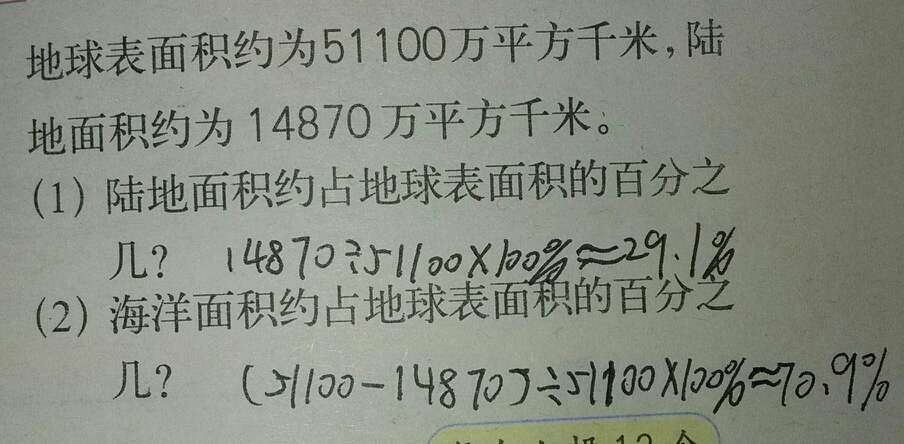 地球表面积约为51100万平方千米，陆
地面积约为14870万平方千米。
(1) 陆地面积约占地球表面积的百分之
几？ 14870÷51100×100%≈29.1%
(2) 海洋面积约占地球表面积的百分之
几？ (51100-14870)÷51100×100%≈70.9%